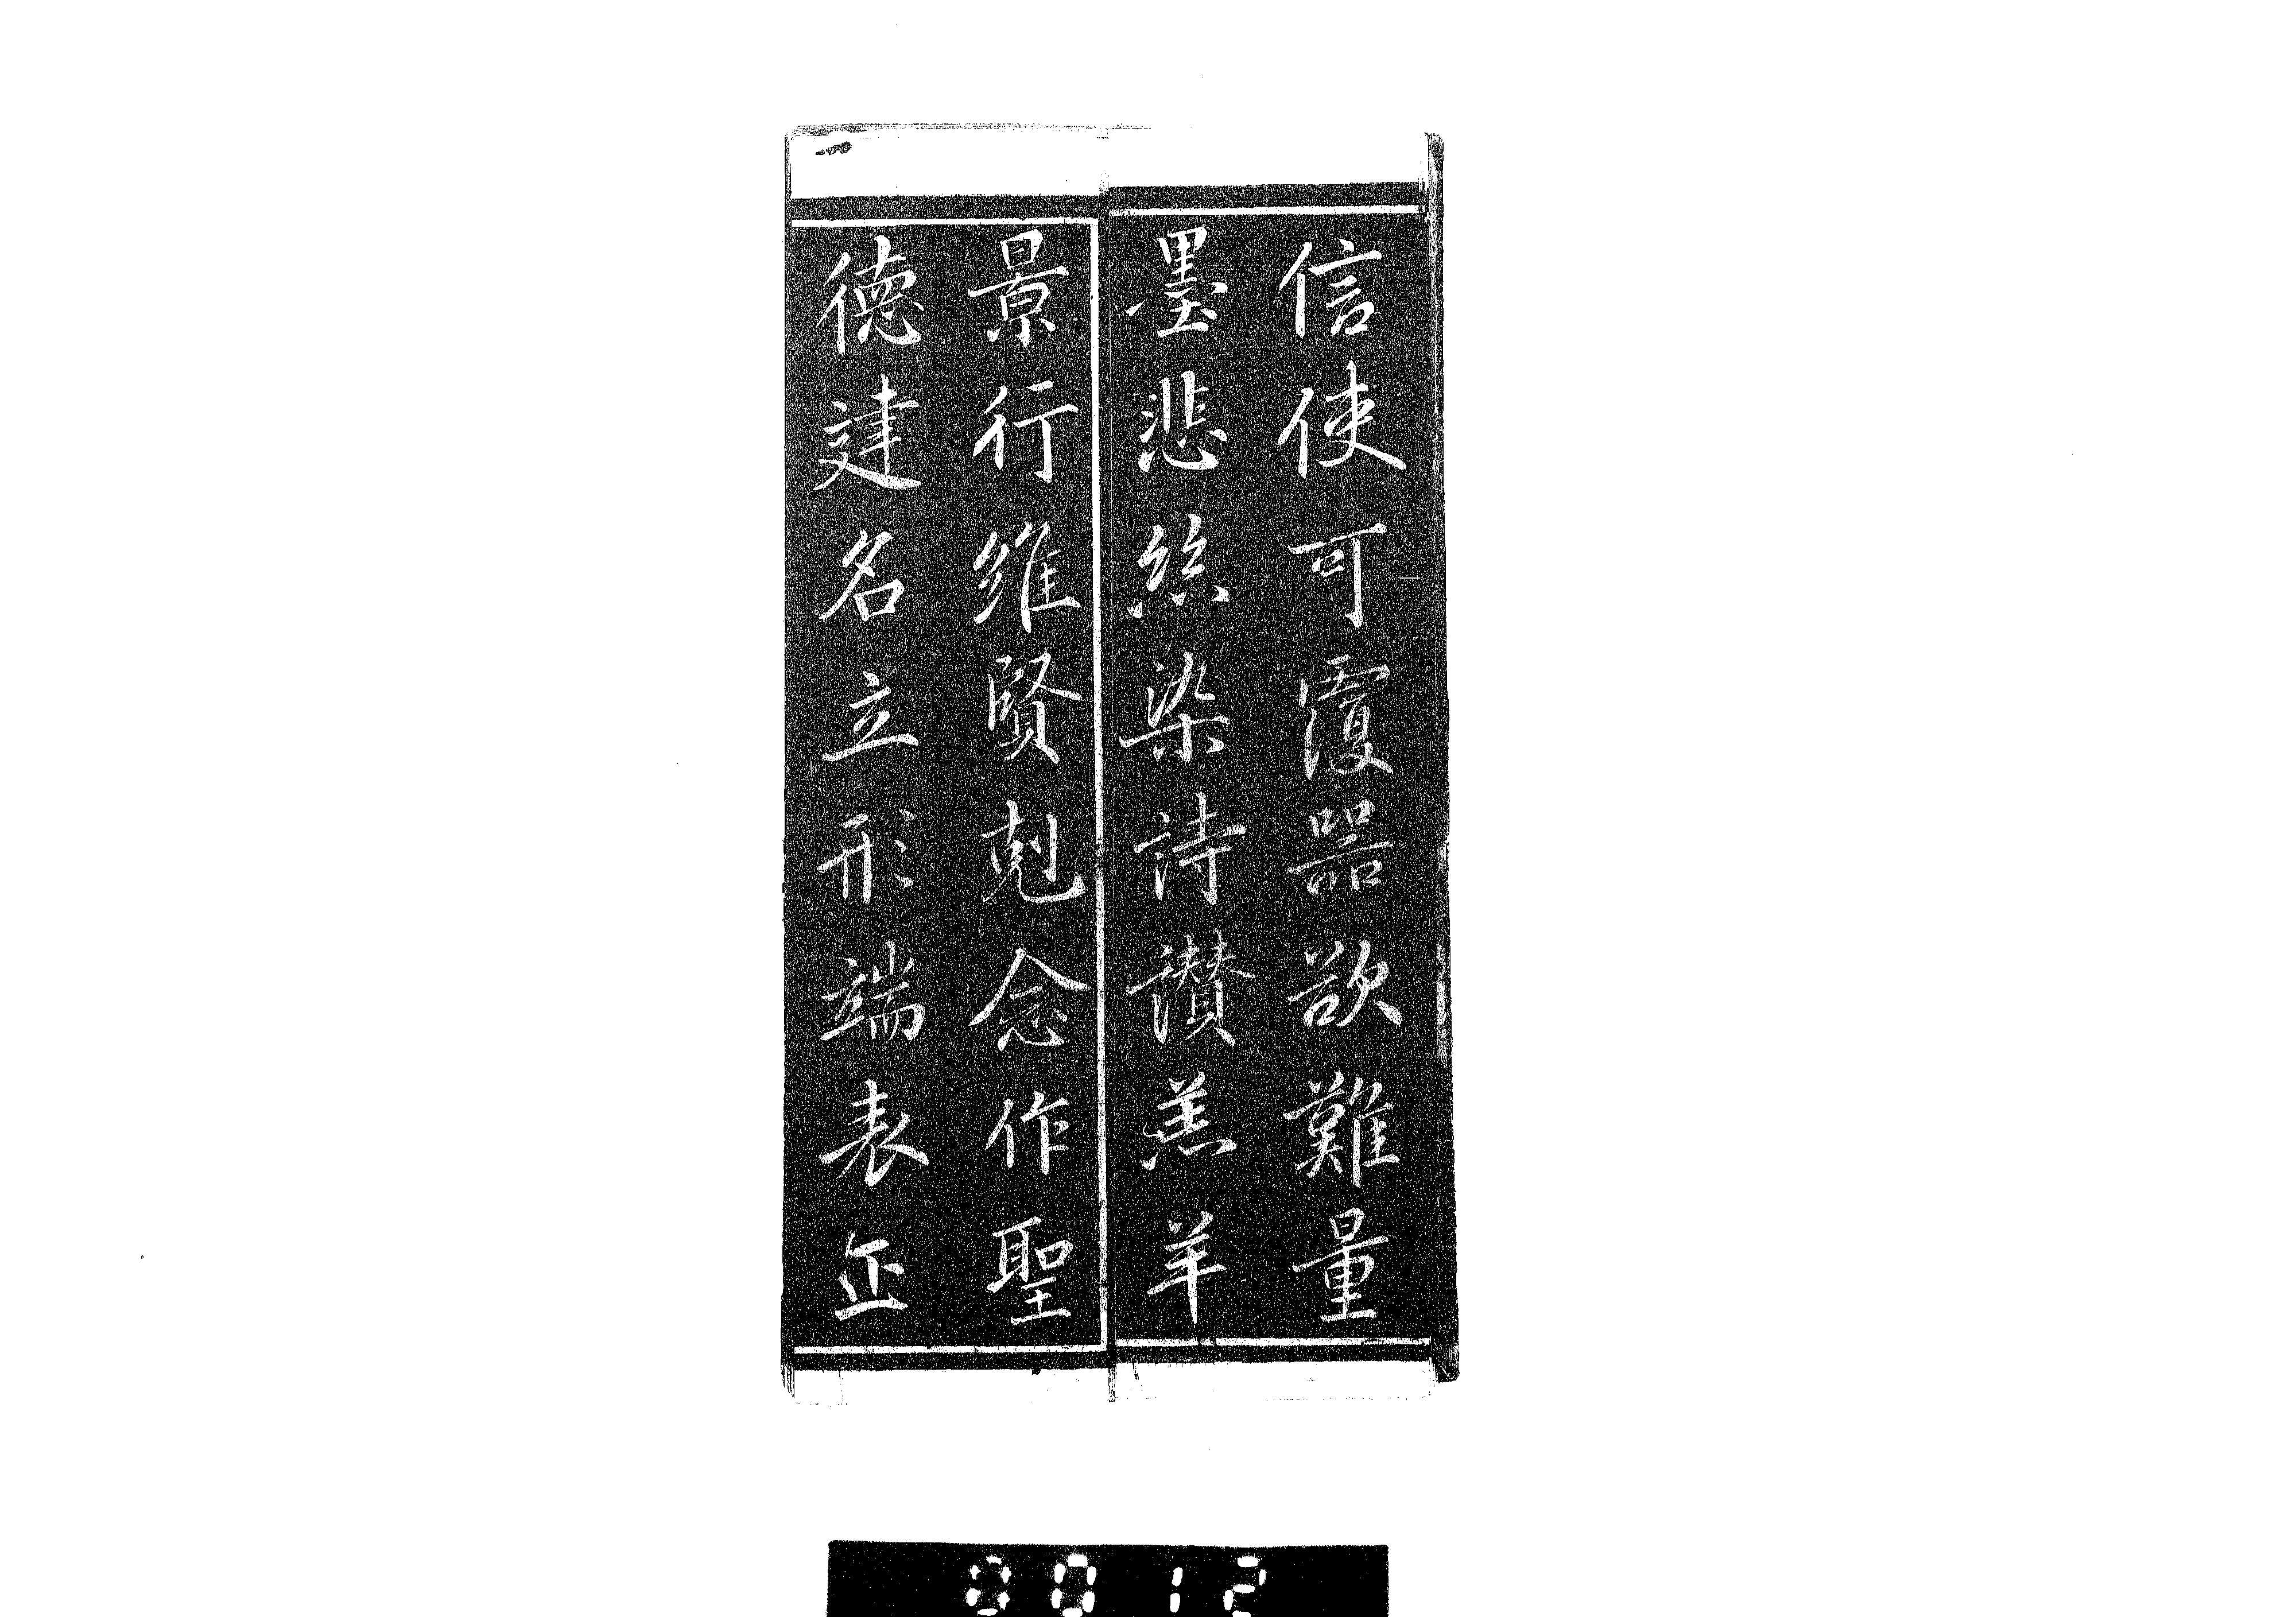 信使可覆器欲難量
墨悲絲染詩讃羔羊
景行維賢剋念作聖
德建名立形端表正
0012